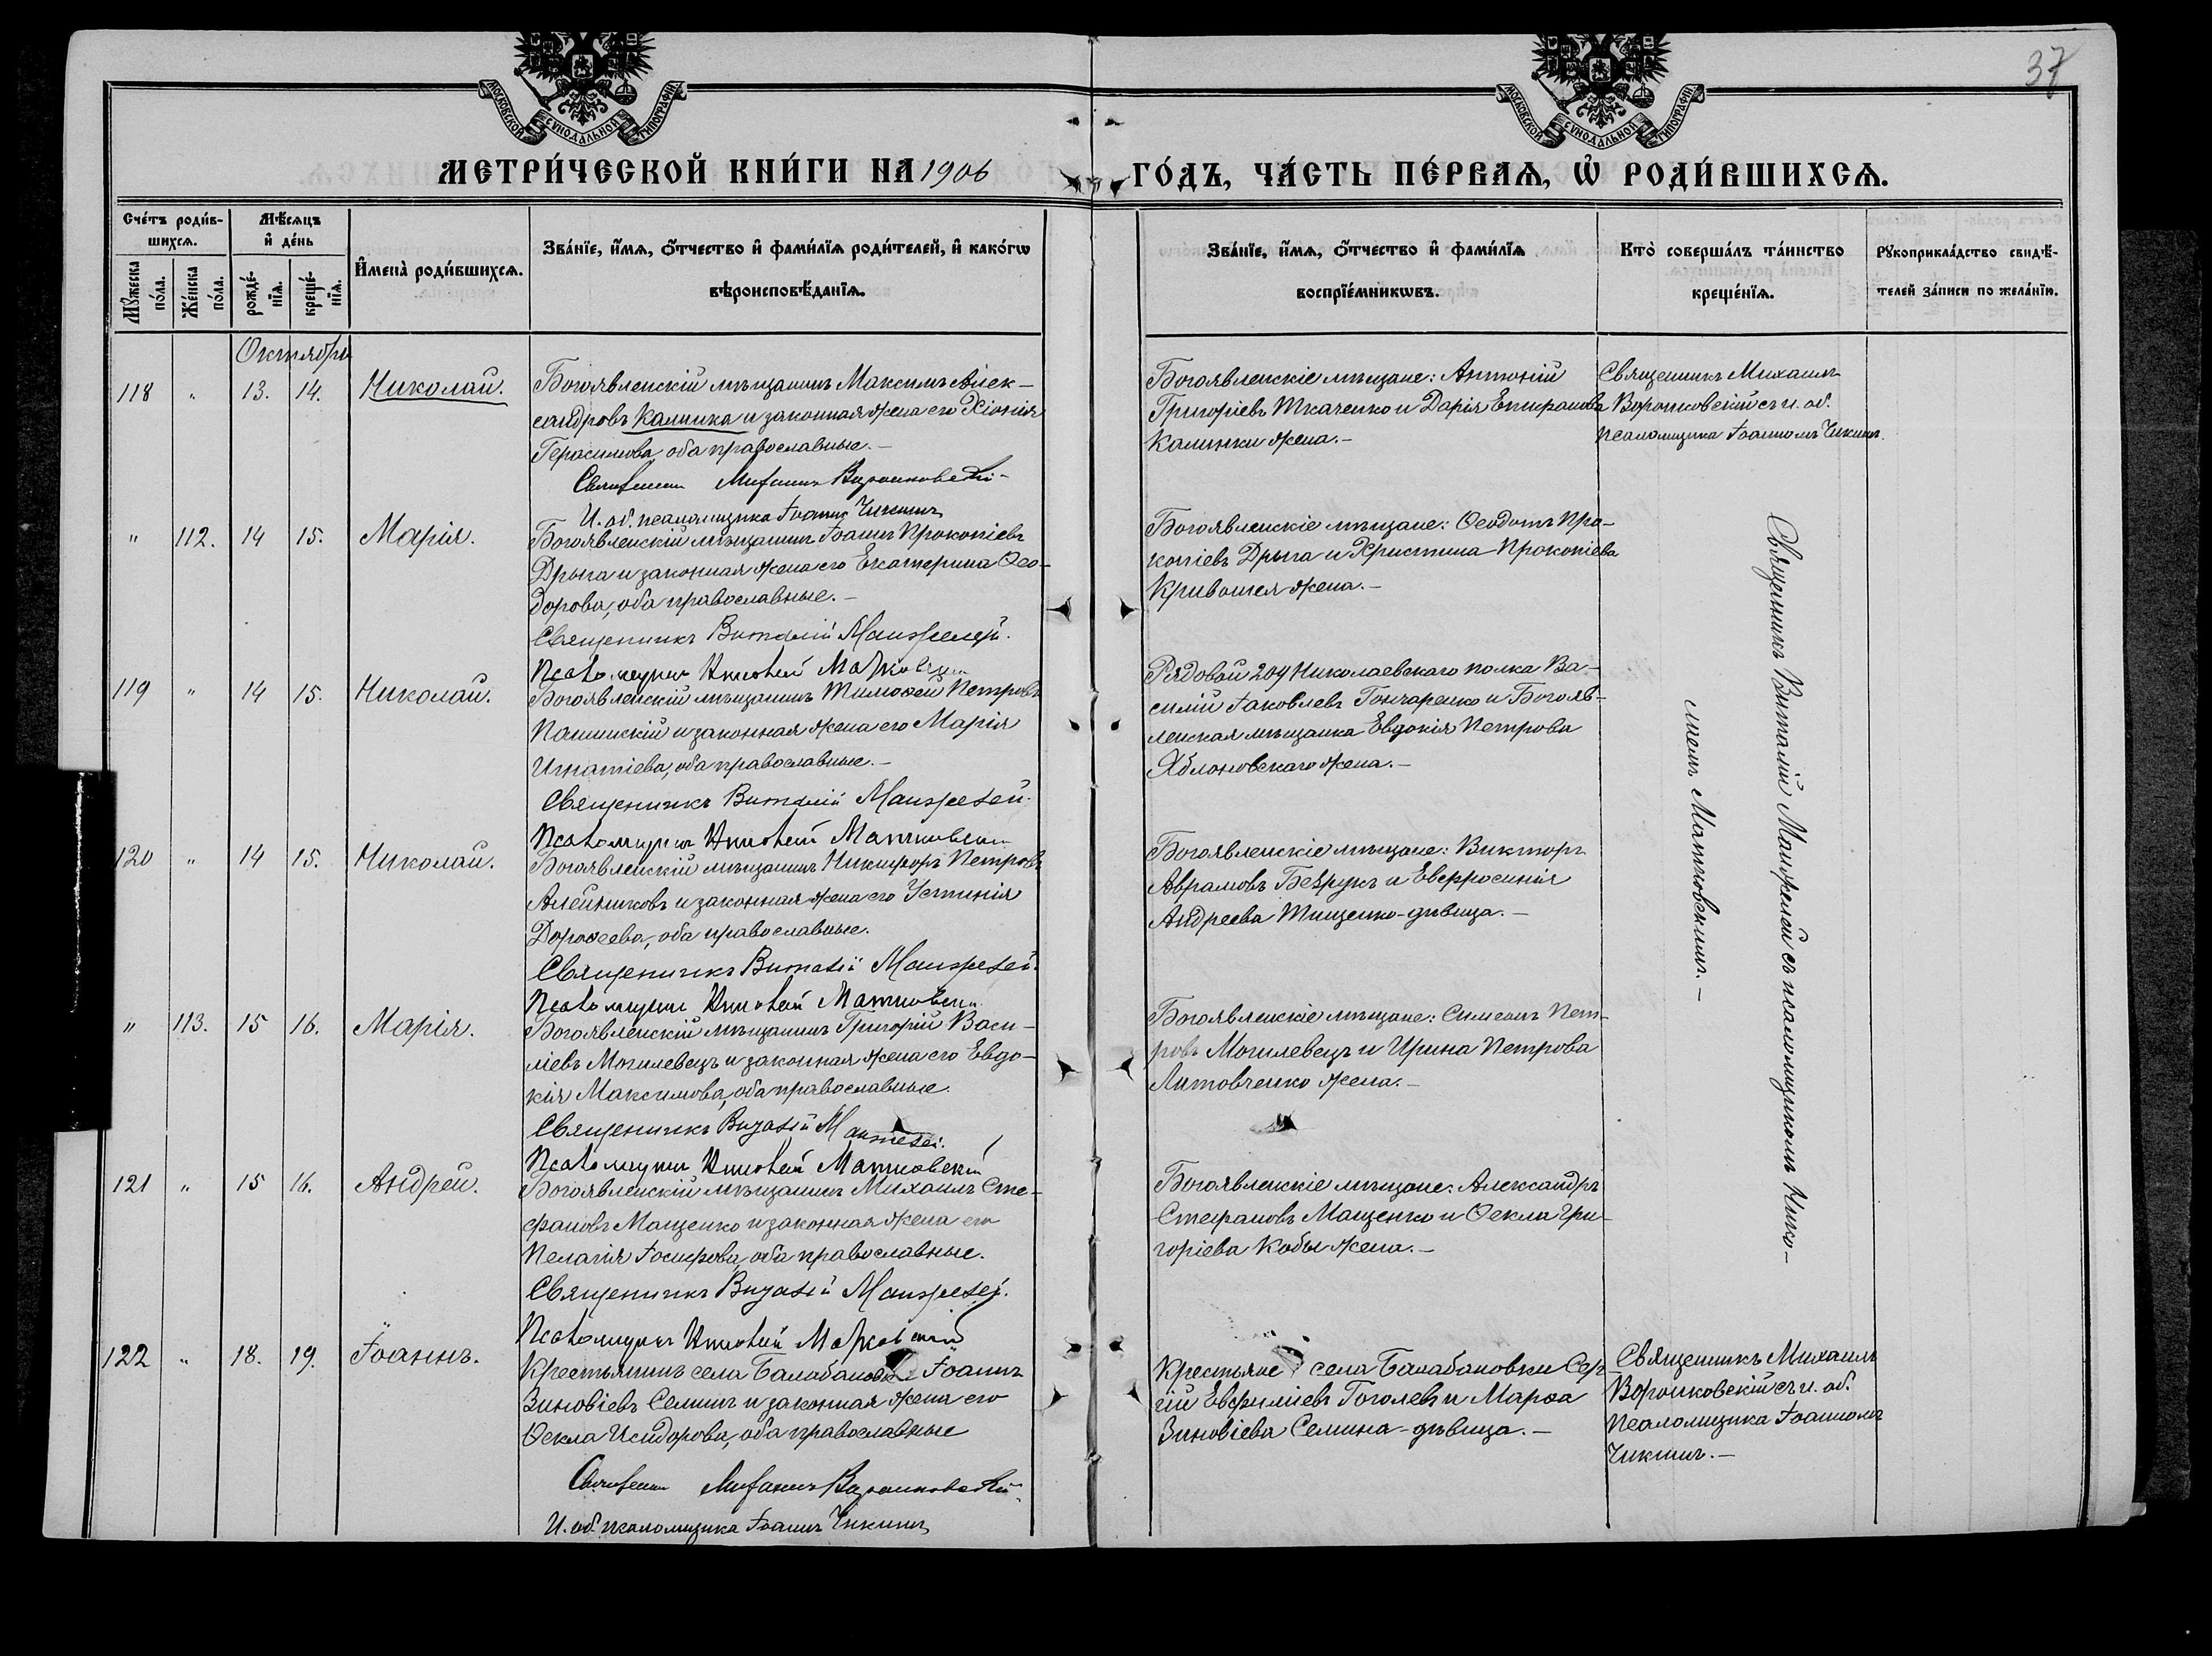 37
МОСКОВСКОЙ СѴНОДАЛЬНОЙ ТИПОГРАФІИ
МОСКОВСКОЙ СѴНОДАЛЬНОЙ ТИПОГРАФІИ
МЕТРИ́ЧЕСКОЙ КНИ́ГИ НА 1906 ГО́ДЪ, ЧА́СТЬ ПЕ́РВАѦ, Ѡ҆ РОДИ́ВШИХСѦ.
Сче́тъ роди́в-
шихсѧ.
Мѹ́жеска по́ла.
Же́нска по́ла.
Мѣ́сѧцъ
и҆ де́нь
рожде́-
нїѧ.
креще́-
нїѧ.
И҆мена̀ роди́вшихсѧ.
Зва́нїе, и҆́мѧ, о҆́тчество и҆ фами́лїѧ роди́телей, и҆ како́гѡ
вѣроисповѣ́данїѧ.
Зва́нїе, и҆́мѧ, о҆́тчество и҆ фами́лїѧ
воспрїе́мникѡвъ.
Кто̀ соверша́лъ та́инство
креще́нїѧ.
Рѹкоприкла́дство свидѣ́-
телей за́писи по жела́нїю.
Октября
118 " 13. 14. Николай.
Богоявленскій мѣщанинъ Максимъ Алек-
сандровъ Калинка и законная жена его Хіонія
Герасимова, оба православные.-
Священникъ Михаилъ Ворошковскій-
И. об. псаломщика Іоаннъ Чикинъ
Богоявленскіе мѣщане: Антоній
Григоріевъ Ткаченко и Дарія Епифанова
Калинки жена.-
Священникъ Михаилъ
Ворошковскій съ и. об.
псаломщика Іоанномъ Чикинъ.
" 112. 14 15. Марія.
Богоявленскій мѣщанинъ Іоаннъ Прокопіевъ
Дрыга и законная жена его Екатерина Ѳео-
дорова, оба православные.-
Священникъ Виталій Манжелей.
Псаломщикъ
Богоявленскіе мѣщане: Ѳеодотъ Про-
копіевъ Дрыга и Христина Прокопіева
Кривошея жена.-
119 " 14 15. Николай.
Богоявленскій мѣщанинъ Тимоѳей Петровъ
и законная жена его Марія
Игнатіева, оба православные.-
Священникъ Виталій Манжелей.
Псаломщикъ
Рядовой 204 Николаевскаго полка Ва-
силій Іаковлевъ Гончаренко и Богояв-
ленская мѣщанка Евдокія Петрова
Яблоновскаго жена.-
120 " 14 15. Николай.
Богоявленскій мѣщанинъ Никифоръ Петровъ
Алейниковъ и законная жена его Устинія
Дороѳеева, оба православные.
Священникъ Виталій Манжелей.
Псаломщикъ
Богоявленскіе мѣщане: Викторъ
Аврамовъ Безрукъ и Евфросинія
Андреева Тищенко-дѣвица.-
" 113. 15 16. Марія.
Богоявленскій мѣщанинъ Григорій Васи-
ліевъ Могилевецъ и законная жена его Евдо-
кія Максимова, оба православные.
Священникъ Виталій Манжелей.
Псаломщикъ
Богоявленскіе мѣщане: Симеонъ Пет-
ровъ Могилевецъ и Ирина Петрова
Литовченко жена.-
121 " 15 16. Андрей.
Богоявленскій мѣщанинъ Михаилъ Сте-
фановъ Мащенко и законная жена его
Пелагія Іосифова, оба православные.
Священникъ Виталій Манжелей.
Псаломщикъ
Богоявленскіе мѣщане: Александръ
Стефановъ Мащенко и Ѳекла Гри-
горіева Кобы жена.-
Священникъ Виталій Манжелей съ псаломщикомъ Нико-
122 " 18. 19. Іоаннъ.
Крестьянинъ села Балабановки Іоаннъ
Зиновіевъ Семинъ и законная жена его
Ѳекла Исидорова, оба православные
Священникъ Михаилъ Ворошковскій
И. об. псаломщика Іоаннъ Чикинъ
Крестьяне села Балабановки Сер-
гій Евфиміевъ Гоголевъ и Марѳа
Зиновіева Семина-дѣвица.-
Священникъ Михаилъ
Ворошковскій съ и. об.
псаломщика Іоанномъ
Чикинъ.-